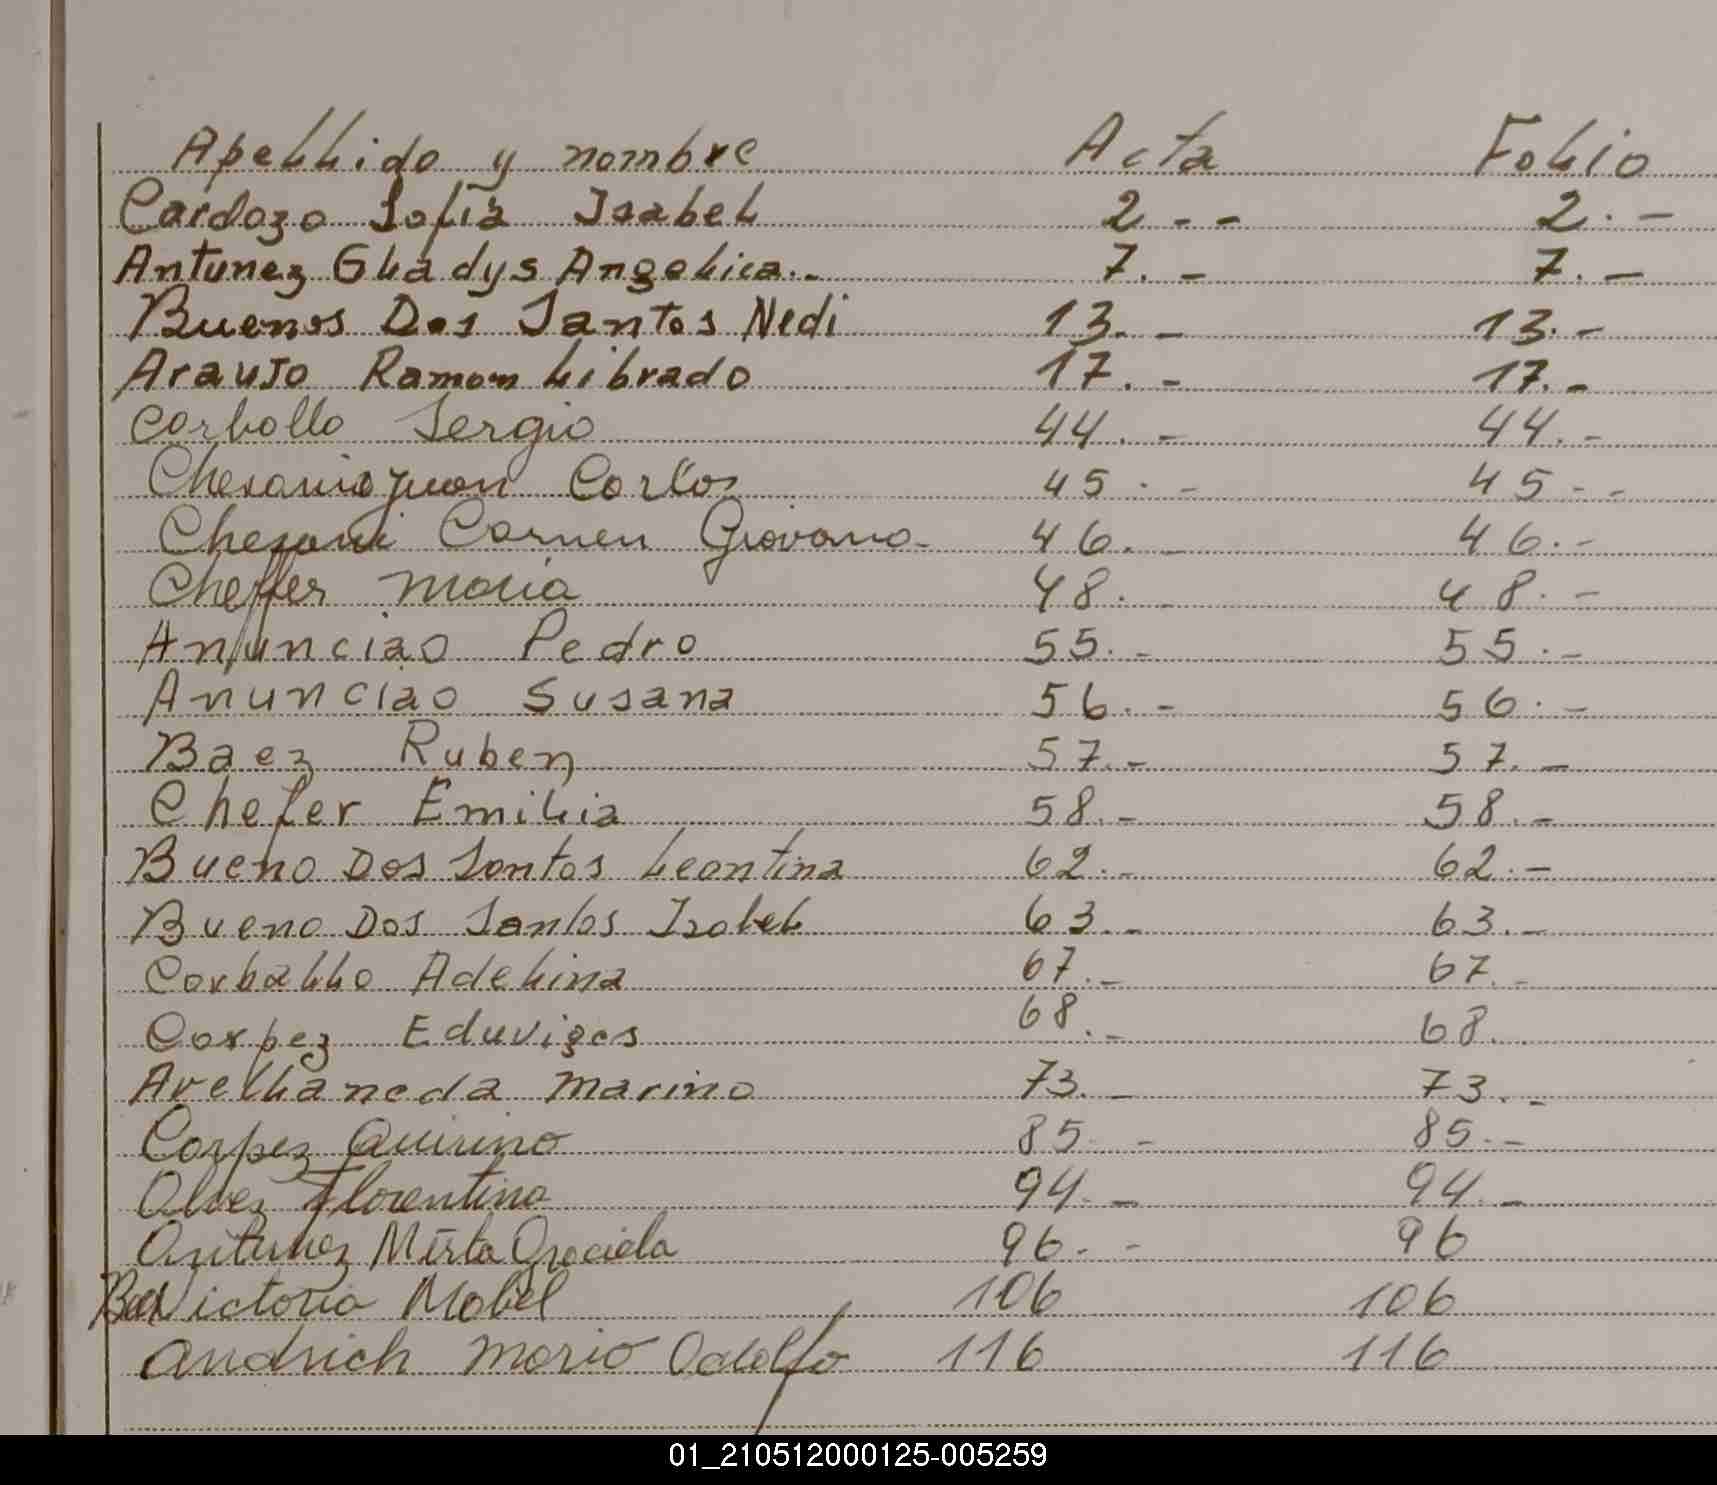 Apellido y nombre Acta Folio
Cardozo Sofia Isabel 2 - - 2. -
Antunez Gladys Angelica.. 7. - 7. -
Buenos Dos Santos Nedi 13. - 13. -
Araujo Ramon Librado 17. - 17. -
Carballo Sergio 44. - 44. -
Juan Carlos 45 . - 45 - -
Carmen Giovana - 46. - 46. -
Cheffer Maria 48. - 48. -
Anunciao Pedro 55. - 55. -
Anunciao Susana 56. - 56. -
Baez Ruben 57. - 57. -
Chefer Emilia 58. - 58. -
Bueno Dos Santos Leontina 62. - 62. -
Bueno Dos Santos Isabel 63. - 63. -
Carballo Adelina 67. - 67. -
Corpez Eduviges 68. - 68.
Avellaneda Marino 73. - 73. -
Corpez Quirino 85. - 85. -
Alvez Florentina 94. - 94. -
Antunez Mirta Graciela 96. - 96
Victoria Mabel 106 106
Andrich Mario Adolfo 116 116
01_210512000125-005259